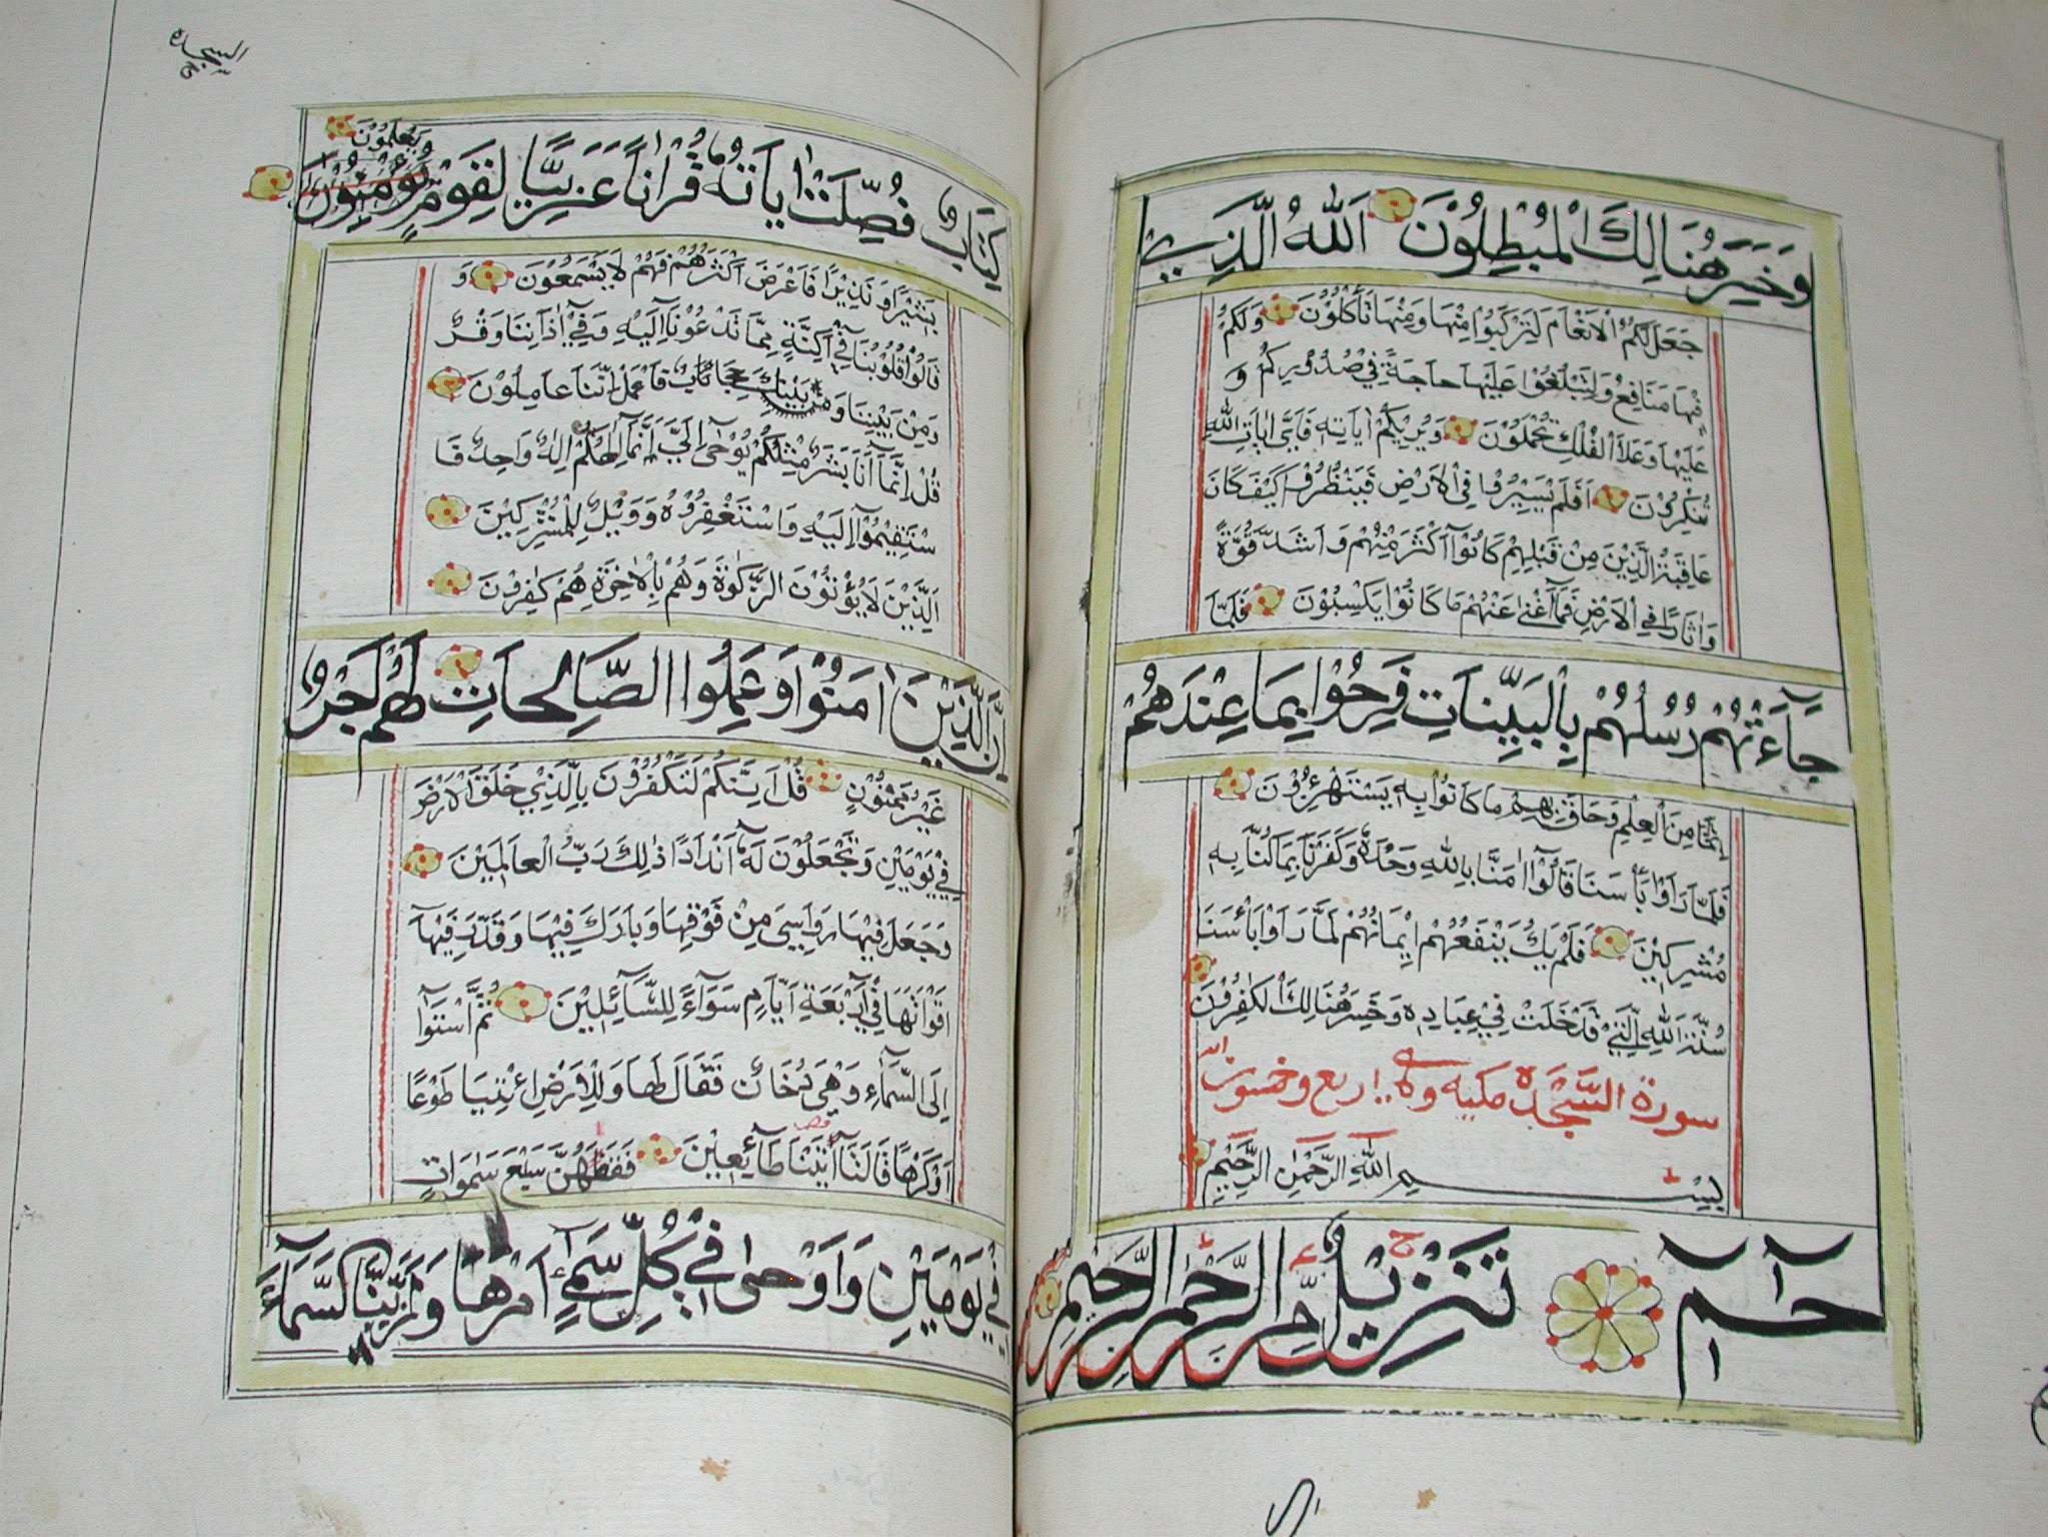 وَخَسِرَ هُنَالِكَ الْمُبْطِلُوْنَ اَللّٰهُ الَّذِيْ
جَعَلَ لَكُمُ الْاَنْعَامَ لِتَرْكَبُوْا مِنْهَا وَمِنْهَا تَأْكُلُوْنَ وَلَكُمْ
فِيْهَا مَنَافِعُ وَلِتَبْلُغُوْا عَلَيْهَا حَاجَةً فِيْ صُدُوْرِكُمْ وَ
عَلَيْهَا وَعَلَى الْفُلْكِ تُحْمَلُوْنَ وَيُرِيْكُمْ اٰيَاتِهٖ فَاَيَّ اٰيَاتِ اللّٰهِ
تُنْكِرُوْنَ اَفَلَمْ يَسِيْرُوْا فِى الْاَرْضِ فَيَنْظُرُوْا كَيْفَ كَانَ
عَاقِبَةُ الَّذِيْنَ مِنْ قَبْلِهِمْ كَانُوْا اَكْثَرَ مِنْهُمْ وَاَشَدَّ قُوَّةً
وَاٰثَارًا فِى الْاَرْضِ فَمَآ اَغْنٰى عَنْهُمْ مَا كَانُوْا يَكْسِبُوْنَ فَلَمَّا
جَآءَتْهُمْ رُسُلُهُمْ بِالْبَيِّنَاتِ فَرِحُوْا بِمَا عِنْدَهُمْ
مِنَ الْعِلْمِ وَحَاقَ بِهِمْ مَا كَانُوْا بِهٖ يَسْتَهْزِءُوْنَ
فَلَمَّا رَاَوْا بَأْسَنَا قَالُوْا اٰمَنَّا بِاللّٰهِ وَحْدَهٗ وَكَفَرْنَا بِمَا كُنَّا بِهٖ
مُشْرِكِيْنَ فَلَمْ يَكُ يَنْفَعُهُمْ اِيْمَانُهُمْ لَمَّا رَاَوْا بَأْسَنَا
سُنَّةَ اللّٰهِ الَّتِيْ قَدْ خَلَتْ فِيْ عِبَادِهٖ وَخَسِرَ هُنَالِكَ الْكٰفِرُوْنَ
سورة السَّجْدَه مكيه وهي اربع وخمسون
بِسْمِ اللّٰهِ الرَّحْمٰنِ الرَّحِيْمِ
حٰمٓ تَنْزِيْلٌ مِّنَ الرَّحْمٰنِ الرَّحِيْمِ
السجده
يَعْلَمُوْنَ
كِتَابٌ فُصِّلَتْ اٰيَاتُهٗ قُرْاٰنًا عَرَبِيًّا لِقَوْمٍ يُؤْمِنُوْنَ
بَشِيْرًا وَنَذِيْرًا فَاَعْرَضَ اَكْثَرُهُمْ فَهُمْ لَا يَسْمَعُوْنَ وَ
قَالُوْا قُلُوْبُنَا فِيْٓ اَكِنَّةٍ مِمَّا تَدْعُوْنَا اِلَيْهِ وَفِيْٓ اٰذَانِنَا وَقْرٌ
وَمِنْ بَيْنِنَا وَبَيْنِكَ حِجَابٌ فَاعْمَلْ اِنَّنَا عَامِلُوْنَ
قُلْ اِنَّمَآ اَنَا بَشَرٌ مِثْلُكُمْ يُوْحٰى اِلَيَّ اَنَّمَآ اِلٰهُكُمْ اِلٰهٌ وَاحِدٌ فَا
سْتَقِيْمُوْٓا اِلَيْهِ وَاسْتَغْفِرُوْهُ وَوَيْلٌ لِلْمُشْرِكِيْنَ
اَلَّذِيْنَ لَا يُؤْتُوْنَ الزَّكٰوةَ وَهُمْ بِالْاٰخِرَةِ هُمْ كٰفِرُوْنَ
اِنَّ الَّذِيْنَ اٰمَنُوْا وَعَمِلُوا الصَّالِحَاتِ لَهُمْ اَجْرٌ
غَيْرُ مَمْنُوْنٍ قُلْ اَئِنَّكُمْ لَتَكْفُرُوْنَ بِالَّذِيْ خَلَقَ الْاَرْضَ
فِيْ يَوْمَيْنِ وَتَجْعَلُوْنَ لَهٗٓ اَنْدَادًا ذٰلِكَ رَبُّ الْعَالَمِيْنَ
وَجَعَلَ فِيْهَا رَوَاسِيَ مِنْ فَوْقِهَا وَبَارَكَ فِيْهَا وَقَدَّرَ فِيْهَآ
اَقْوَاتَهَا فِيْٓ اَرْبَعَةِ اَيَّامٍ سَوَآءً لِلسَّآئِلِيْنَ ثُمَّ اسْتَوٰٓى
اِلَى السَّمَآءِ وَهِيَ دُخَانٌ فَقَالَ لَهَا وَلِلْاَرْضِ ائْتِيَا طَوْعًا
اَوْ كَرْهًا قَالَتَآ اَتَيْنَا طَآئِعِيْنَ فَقَضٰهُنَّ سَبْعَ سَمٰوَاتٍ
فِيْ يَوْمَيْنِ وَاَوْحٰى فِيْ كُلِّ سَمَآءٍ اَمْرَهَا وَزَيَّنَّا السَّمَآءَ